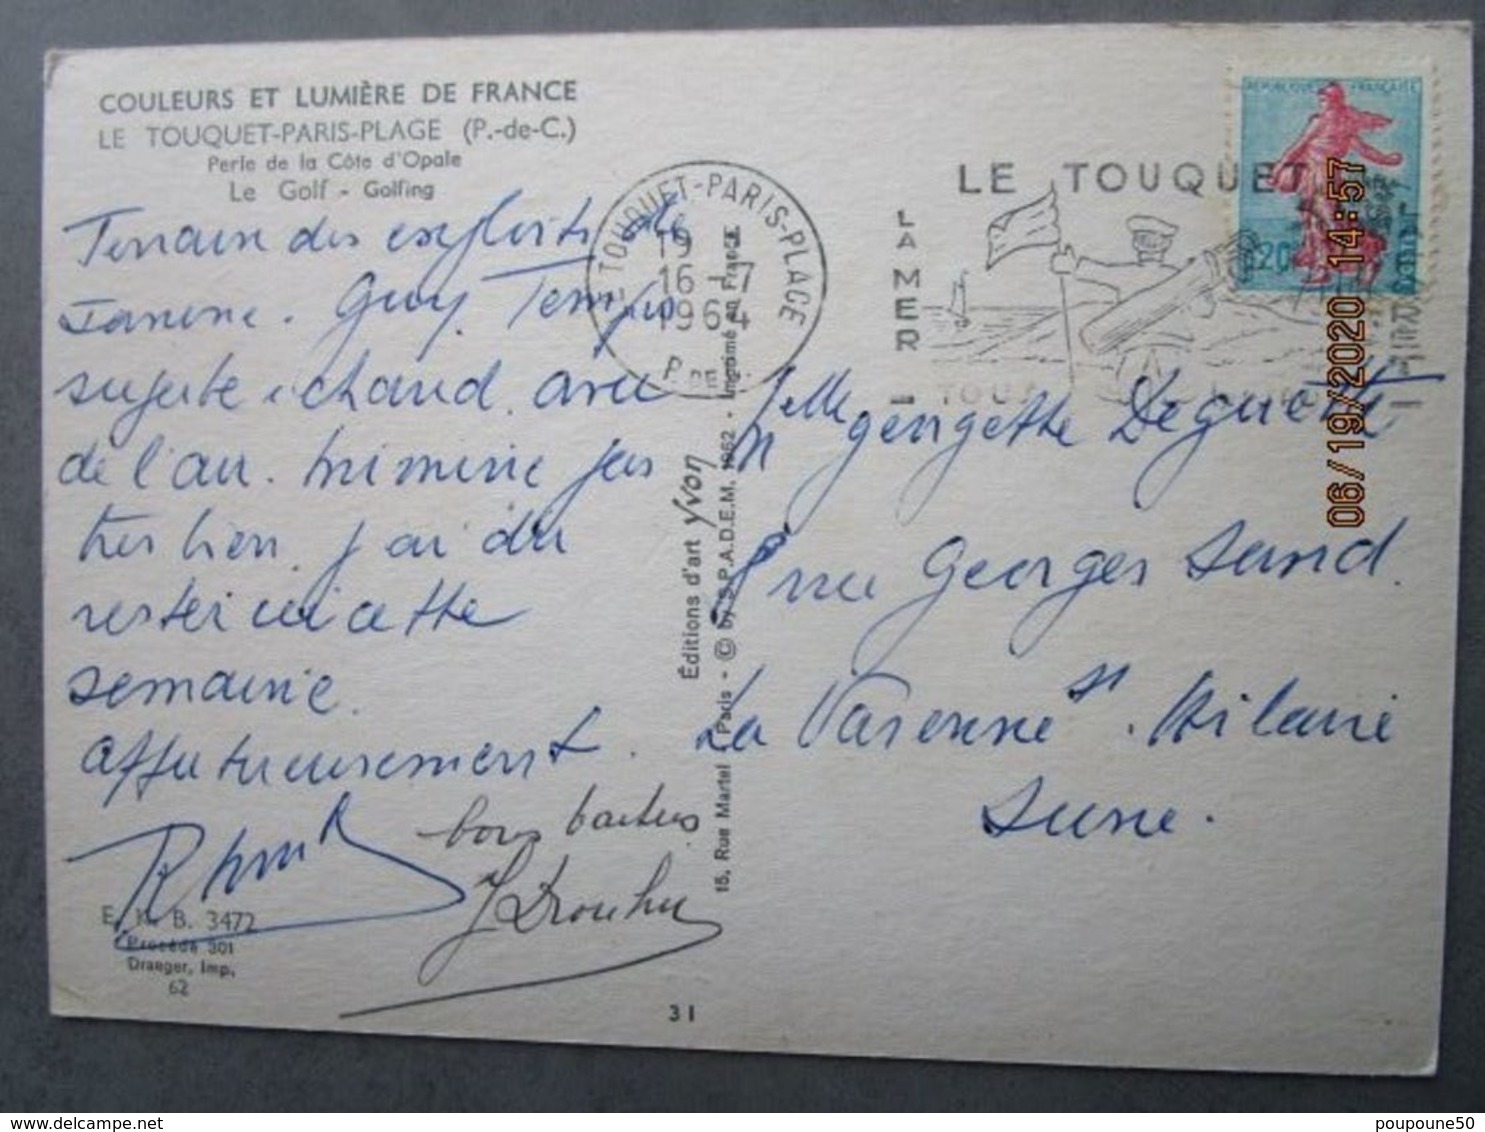 COULEURS ET LUMIÈRE DE FRANCE
LE TOUQUET-PARIS-PLAGE (P.-de-C.)
Perle de la Côte d'Opale
Le Golf - Golfing
Terrain des exploits de
Janine. Guy. Temps
superbe, chaud, avec
de l'air. Mimine pas
très bien. J'ai du
rester ici cette
semaine.
affectueusement.
bons baisers
J Drouhin
E. K. B. 3472
Procédé 301
Draeger, Imp.
62
31
Éditions d'art Yvon
15, Rue Martel Paris - © by S.P.A.D.E.M. 1962 - Imprimé en France
LE TOUQUET-PARIS-PLAGE
19
16 - 7
1964
P. DE
LE TOUQUET
LA MER
RÉPUBLIQUE FRANÇAISE
0.20
Melle Georgette Deguette
8 rue Georges Sand.
La Varenne St. Hilaire
Seine.
06/19/2020 14:57
poupoune50